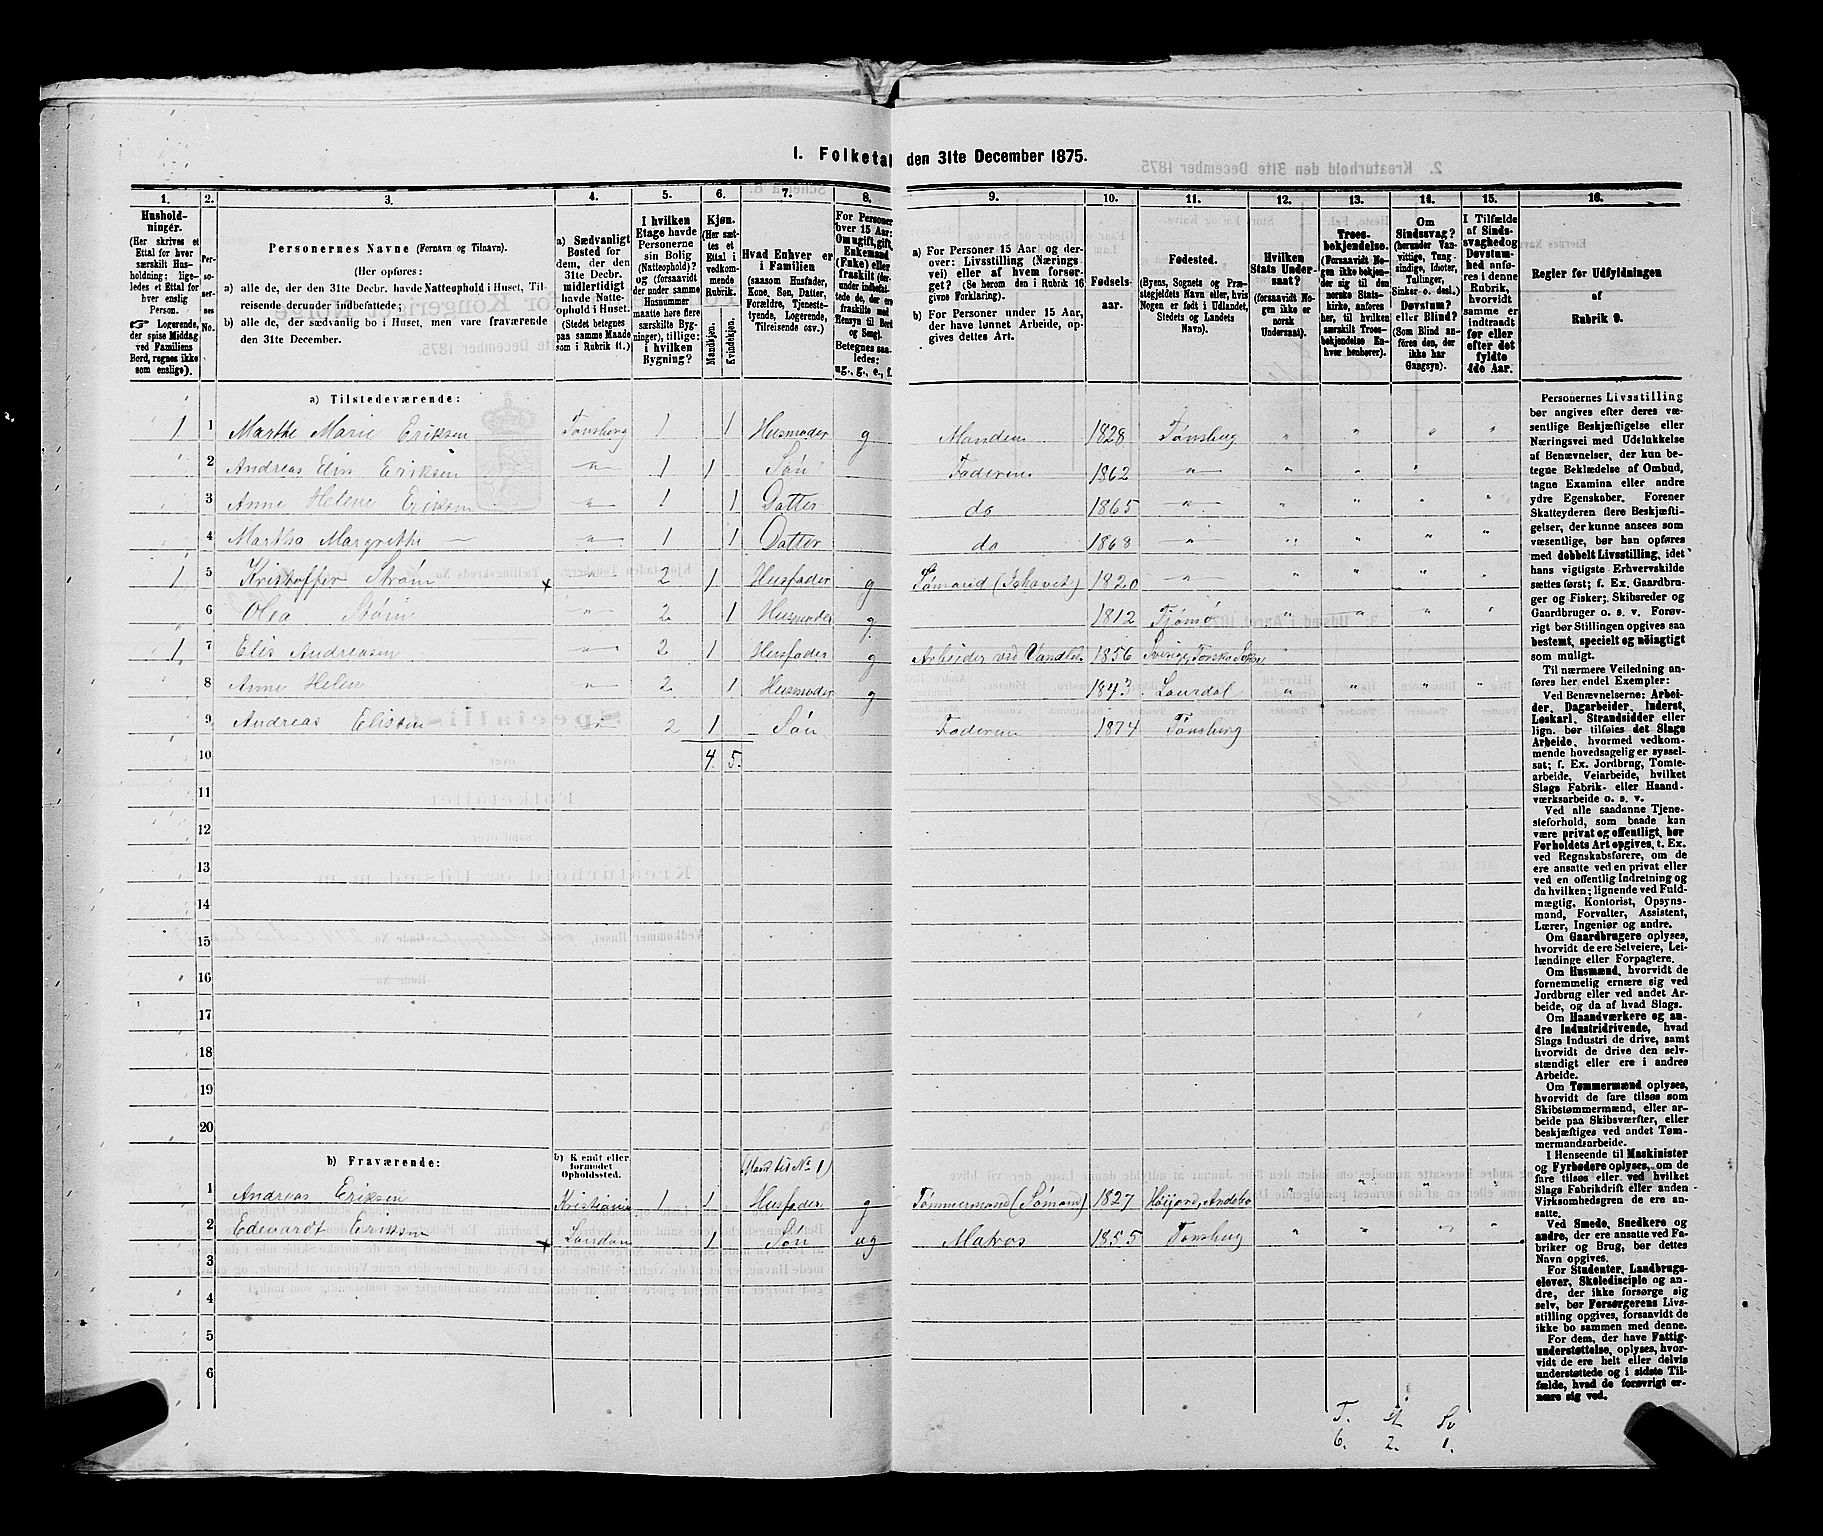 1. Folketal den 31te December 1875.
1. 2. 3. 4. 5. 6. 7. 8. 9. 10. 11. 12. 13. 14. 15. 16.
Husholdninger. (Her skrives et Ettal for hver særskilt Husholdning; ligeledes et Ettal for hver enslig Person. Logerende, der spise Middag ved Familiens Bord, regnes ikke som enslige).
Personernes No.
Personernes Navne (Fornavn og Tilnavn).
(Her opføres:
a) alle de, der den 31te Decbr. havde Natteophold i Huset, Tilreisende derunder indbefattede;
b) alle de, der sædvanlig bo i Huset, men vare fraværende den 31te December.
a) Sædvanligt Bosted for dem, der den 31te Decbr. midlertidigt havde Natteophold i Huset. (Stedet betegnes paa samme Maade som i Rubrik 11.)
I hvilken Etage havde Personerne sin Bolig (Natteophold)? og (forsaavidt der under samme Husnummer maatte høre flere særskilte Bygninger), tillige: i hvilken Bygning?
Kjøn. (Her sættes et Ettal i vedkommende Rubrik.
Mandkjøn. Kvindekjøn.
Hvad Enhver er i Familien (saasom Husfader, Kone, Søn, Datter, Forældre, Tjenestetyende, Logerende, Tilreisende osv.)
For Personer over 15 Aar: Om ugift, gift, Enkemand (Enke) eller fraskilt (derunder indbefattede de, der ere fraskilte med Hensyn til Bord og Seng). Betegnes saaledes: ug., g., e., f.
a) For Personer 15 Aar og derover: Livsstilling (Næringsvei) eller af hvem forsørget? (Se herom den i Rubrik 16 givne Forklaring).
b) For Personer under 15 Aar, der have lønnet Arbeide, opgives dettes Art.
Fødselsaar.
Fødested. (Byens, Sognets og Præstegjeldets Navn eller, hvis Nogen er født i Udlandet, Stedets og Landets Navn).
Hvilken Stats Undersaat? (forsaavidt Nogen ikke er norsk Undersaat).
Troesbekjendelse. (Forsaavidt Nogen ikke bekjender sig til den norske Statskirke, anføres her, til hvilken særskilt Troesbekjendelse Enhver henhører).
Om Sindssvag? (herunder Vanvittige, Tungsindige, Idioter, Tullinger, Sinker o. desl.) Døvstum? eller Blind? (Som Blind anføres den, der ikke har Gangsyn).
I Tilfælde af Sindssvaghed og Døvstumhed anføres i denne Rubrik, hvorvidt samme er indtraadt før eller efter det fyldte 4de Aar.
Regler for Udfyldningen af Rubrik 9.
a) Tilstedeværende:
1 1 Marthe Marie Eriksen Tønsberg 1 1 Husmoder g Manden 1828 Tønsberg " " " "
2 Andreas Elin Eriksen " 1 1 Søn Faderen 1862 " " " "
3 Anne Helene Eriksen " 1 1 Datter do 1865 " " " " "
4 Martha Margrethe — " 1 1 Datter do 1868 " " " " "
1 5 Kristoffer Strøm x " 2 1 Husfader g Sømand (Ishavet) 1820 " " " " "
6 Olea Strøm " 2 1 Husmoder g 1812 Tjømø " " " "
1 7 Elis Andreasen " 2 1 Husfader g Arbeider ved 1856 Sverige,
8 Anne Helen " 2 1 Husmoder g 1843 Laurdal " " " "
9 Andreas Elisen " 2 1 Søn Faderen 1874 Tønsberg
10 4. 5.
11
12
13
14
15
16
17
18
19
20
b) Fraværende:
b) Kendt eller formodet Opholdssted.
(Mand til No 1)
1 Andreas Eriksen Kristiania 1 1 Husfader g Tømmermand (Sømand) 1827 Høijord, Andebo " " " "
2 Edevardt Eriksen x London 1 Søn ug Matros 1855 Tønsberg " " " "
3
4
5
6
T. st Sv
6. 2. 1.
Personernes Livsstilling
bør angives efter deres væsentlige
Beskjæftigelse eller
Næringsvei med Udelukkelse
af Benævnelser, der kun betegne
Beklædelse af Ombud,
tagne Examina eller andre
ydre Egenskaber. Forener
Skatteyderen flere Beskjæftigelser,
der kunne ansees som
væsentlige, bør han opføres
med dobbelt Livsstilling, idet
hans vigtigste Erhvervskilde
sættes først; f. Ex. Gaardbruger
og Fisker; Skibsreder og
Gaardbruger o. s. v. Forøvrigt
bør Stillingen opgives saa
bestemt, specielt og nøiagtigt
som muligt.
Til nærmere Veiledning anføres
her endel Exempler:
Ved Benævnelserne: Arbeider,
Dagarbeider, Inderst,
Løskarl, Strandsidder eller
lign. bør tilføies det Slags
Arbeide, hvormed vedkommende
hovedsagelig er sysselsat;
f. Ex. Jordbrug, Tomtearbeide,
Veiarbeide, hvilket
Slags Fabrik- eller Haandværksarbeide
o. s. v.
Ved alle saadanne Tjenesteforhold,
som baade kan
være privat og offentligt, bør
Forholdets Art opgives, t. Ex.
ved Regnskabsførere, om de
ere ansatte ved en privat eller
ved en offentlig Indretning og
da hvilken; lignende ved Fuldmægtig,
Kontorist, Opsynsmand,
Forvalter, Assistent,
Lærer, Ingeniør og andre.
Om Gaardbrugere oplyses,
hvorvidt de ere Selveiere, Leilændinge
eller Forpagtere.
Om Husmænd, hvorvidt de
fornemmelig ernære sig ved
Jordbrug eller ved andet Arbeide,
og da af hvad Slags.
Om Haandværkere og andre
Industridrivende, hvad
Slags Industri de drive, samt
hvorvidt de drive den selvstændigt
eller ere i andres
Arbeide.
Om Tømmermænd oplyses,
hvorvidt de fare tilsøs som
Skibstømmermænd, eller arbeide
paa Skibsværfter, eller
beskjæftiges ved andet Tømmermandsarbeide.
I Henseende til Maskinister
og Fyrbødere oplyses, om de
fare tilsøs eller ved hvilket
Slags Fabrikdrift eller anden
Virksomhed de ere ansatte.
Ved Smede, Snedkere og
andre, der ere ansatte ved Fabriker
og Brug, bør dettes
Navn opgives.
For Studenter, Landbrugselever,
Skoledisciple og andre,
der ikke forsørge sig
selv, bør Forsørgerens Livsstilling
opgives, forsaavidt de
ikke bo sammen med denne.
For dem, der have Fattigunderstøttelse,
oplyses, hvorvidt
de ere helt eller delvis
understøttede og i sidste Tilfælde,
hvad de forøvrigt ernære
sig ved.